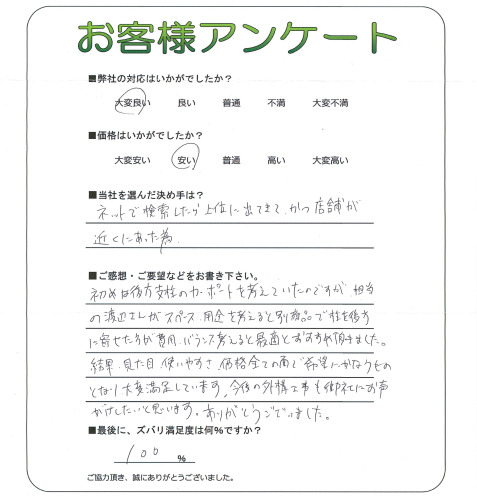 お客様アンケート
■弊社の対応はいかがでしたか?
大変良い 良い 普通 不満 大変不満
■価格はいかがでしたか?
大変安い 安い 普通 高い 大変高い
■当社を選んだ決め手は?
ネットで検索したら上位に出てきて、かつ店舗が
近くにあった為。
■ご感想・ご要望などをお書き下さい。
初めは後方支柱のカーポートを考えていたのですが、担当
の渡辺さんがスペース、用途を考えると別商品で柱を後方
に寄せた方が費用、バランス考えると最適とおすすめ頂きました。
結果、見た目、使いやすさ、価格全ての面で希望にかなうもの
となり大変満足しています。今後の外構工事も御社にお声
がけしたいと思います。ありがとうございました。
■最後に、ズバリ満足度は何%ですか?
100 %
ご協力頂き、誠にありがとうございました。